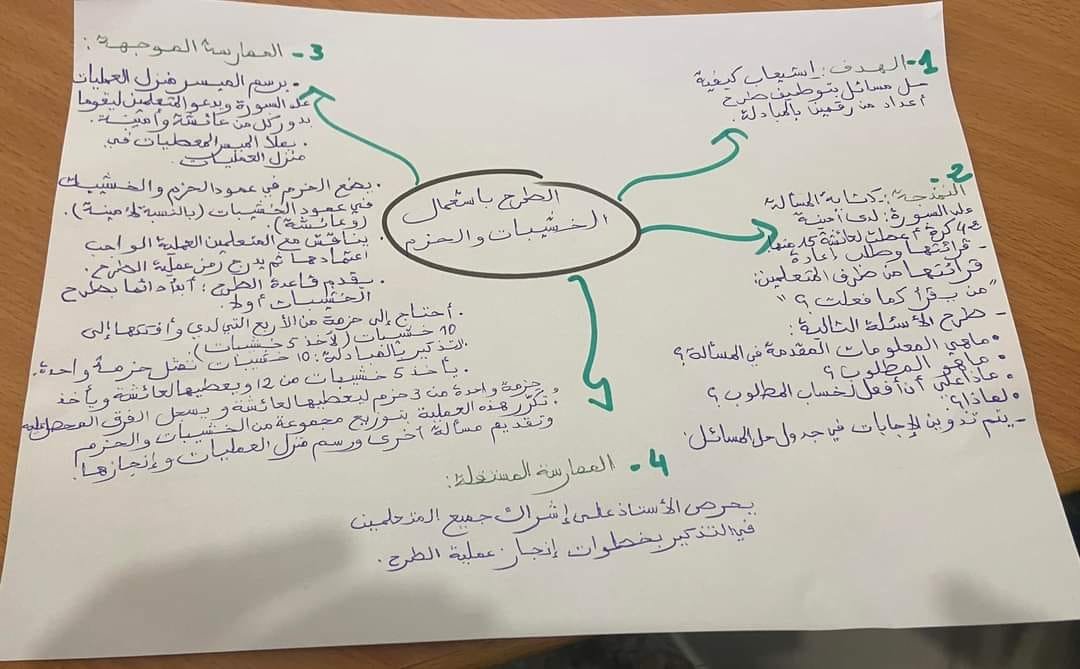 الطرح باستعمال
الخشيبات والحزم
1- الهدف: استيعاب كيفية
حل مسائل بتوظيف طرح
أعداد من رقمين بالمبادلة.
2-
النمذجة: كتابة المسألة
على السبورة: لدى أمينة
42 كرة أعطت لعائشة 15 منها.
- قرائتها وطلب إعادة
قرائتها من طرف المتعلمين:
"من يقرأ كما فعلت؟"
- طرح الأسئلة التالية:
• ماهي المعلومات المقدمة في المسألة؟
• ماهو المطلوب؟
• ماذا علي أن أفعل لحساب المطلوب؟
• لماذا؟
- يتم تدوين الإجابات في جدول حل المسائل.
3- الممارسة الموجهة:
• يرسم الميسر منزل العمليات
على السبورة ويدعو المتعلمين ليقوما
بدور كل من عائشة وأمينة.
• يملأ الميسر المعطيات في
منزل العمليات.
• يضع الحزم في عمود الحزم والخشيبات
في عمود الخشيبات (بالنسبة لأمينة).
(وعائشة).
• يناقش مع المتعلمين العملية الواجب
اعتمادها ثم يدرج رمز عملية الطرح.
• يقدم قاعدة الطرح: أبدأ دائما بطرح
الخشيبات أولا.
• أحتاج إلى حزمة من الأربع التي لدي وأفتكها إلى
10 خشيبات (لآخذ 5 خشيبات).
(التذكير بالمبادلة: 10 خشيبات تمثل حزمة واحدة.
• يأخذ 5 خشيبات من 12 ويعطيها لعائشة ويأخذ
حزمة واحدة من 3 حزم ليعطيها لعائشة ويسجل الفرق المحصل عليه
• تكرر هذه العملية بتوزيع مجموعة من الخشيبات والحزم
وتقديم مسألة أخرى ورسم منزل العمليات وإنجازها.
4- الممارسة المستقلة:
يحرص الأستاذ على إشراك جميع المتعلمين
في التذكير بخطوات إنجاز عملية الطرح.